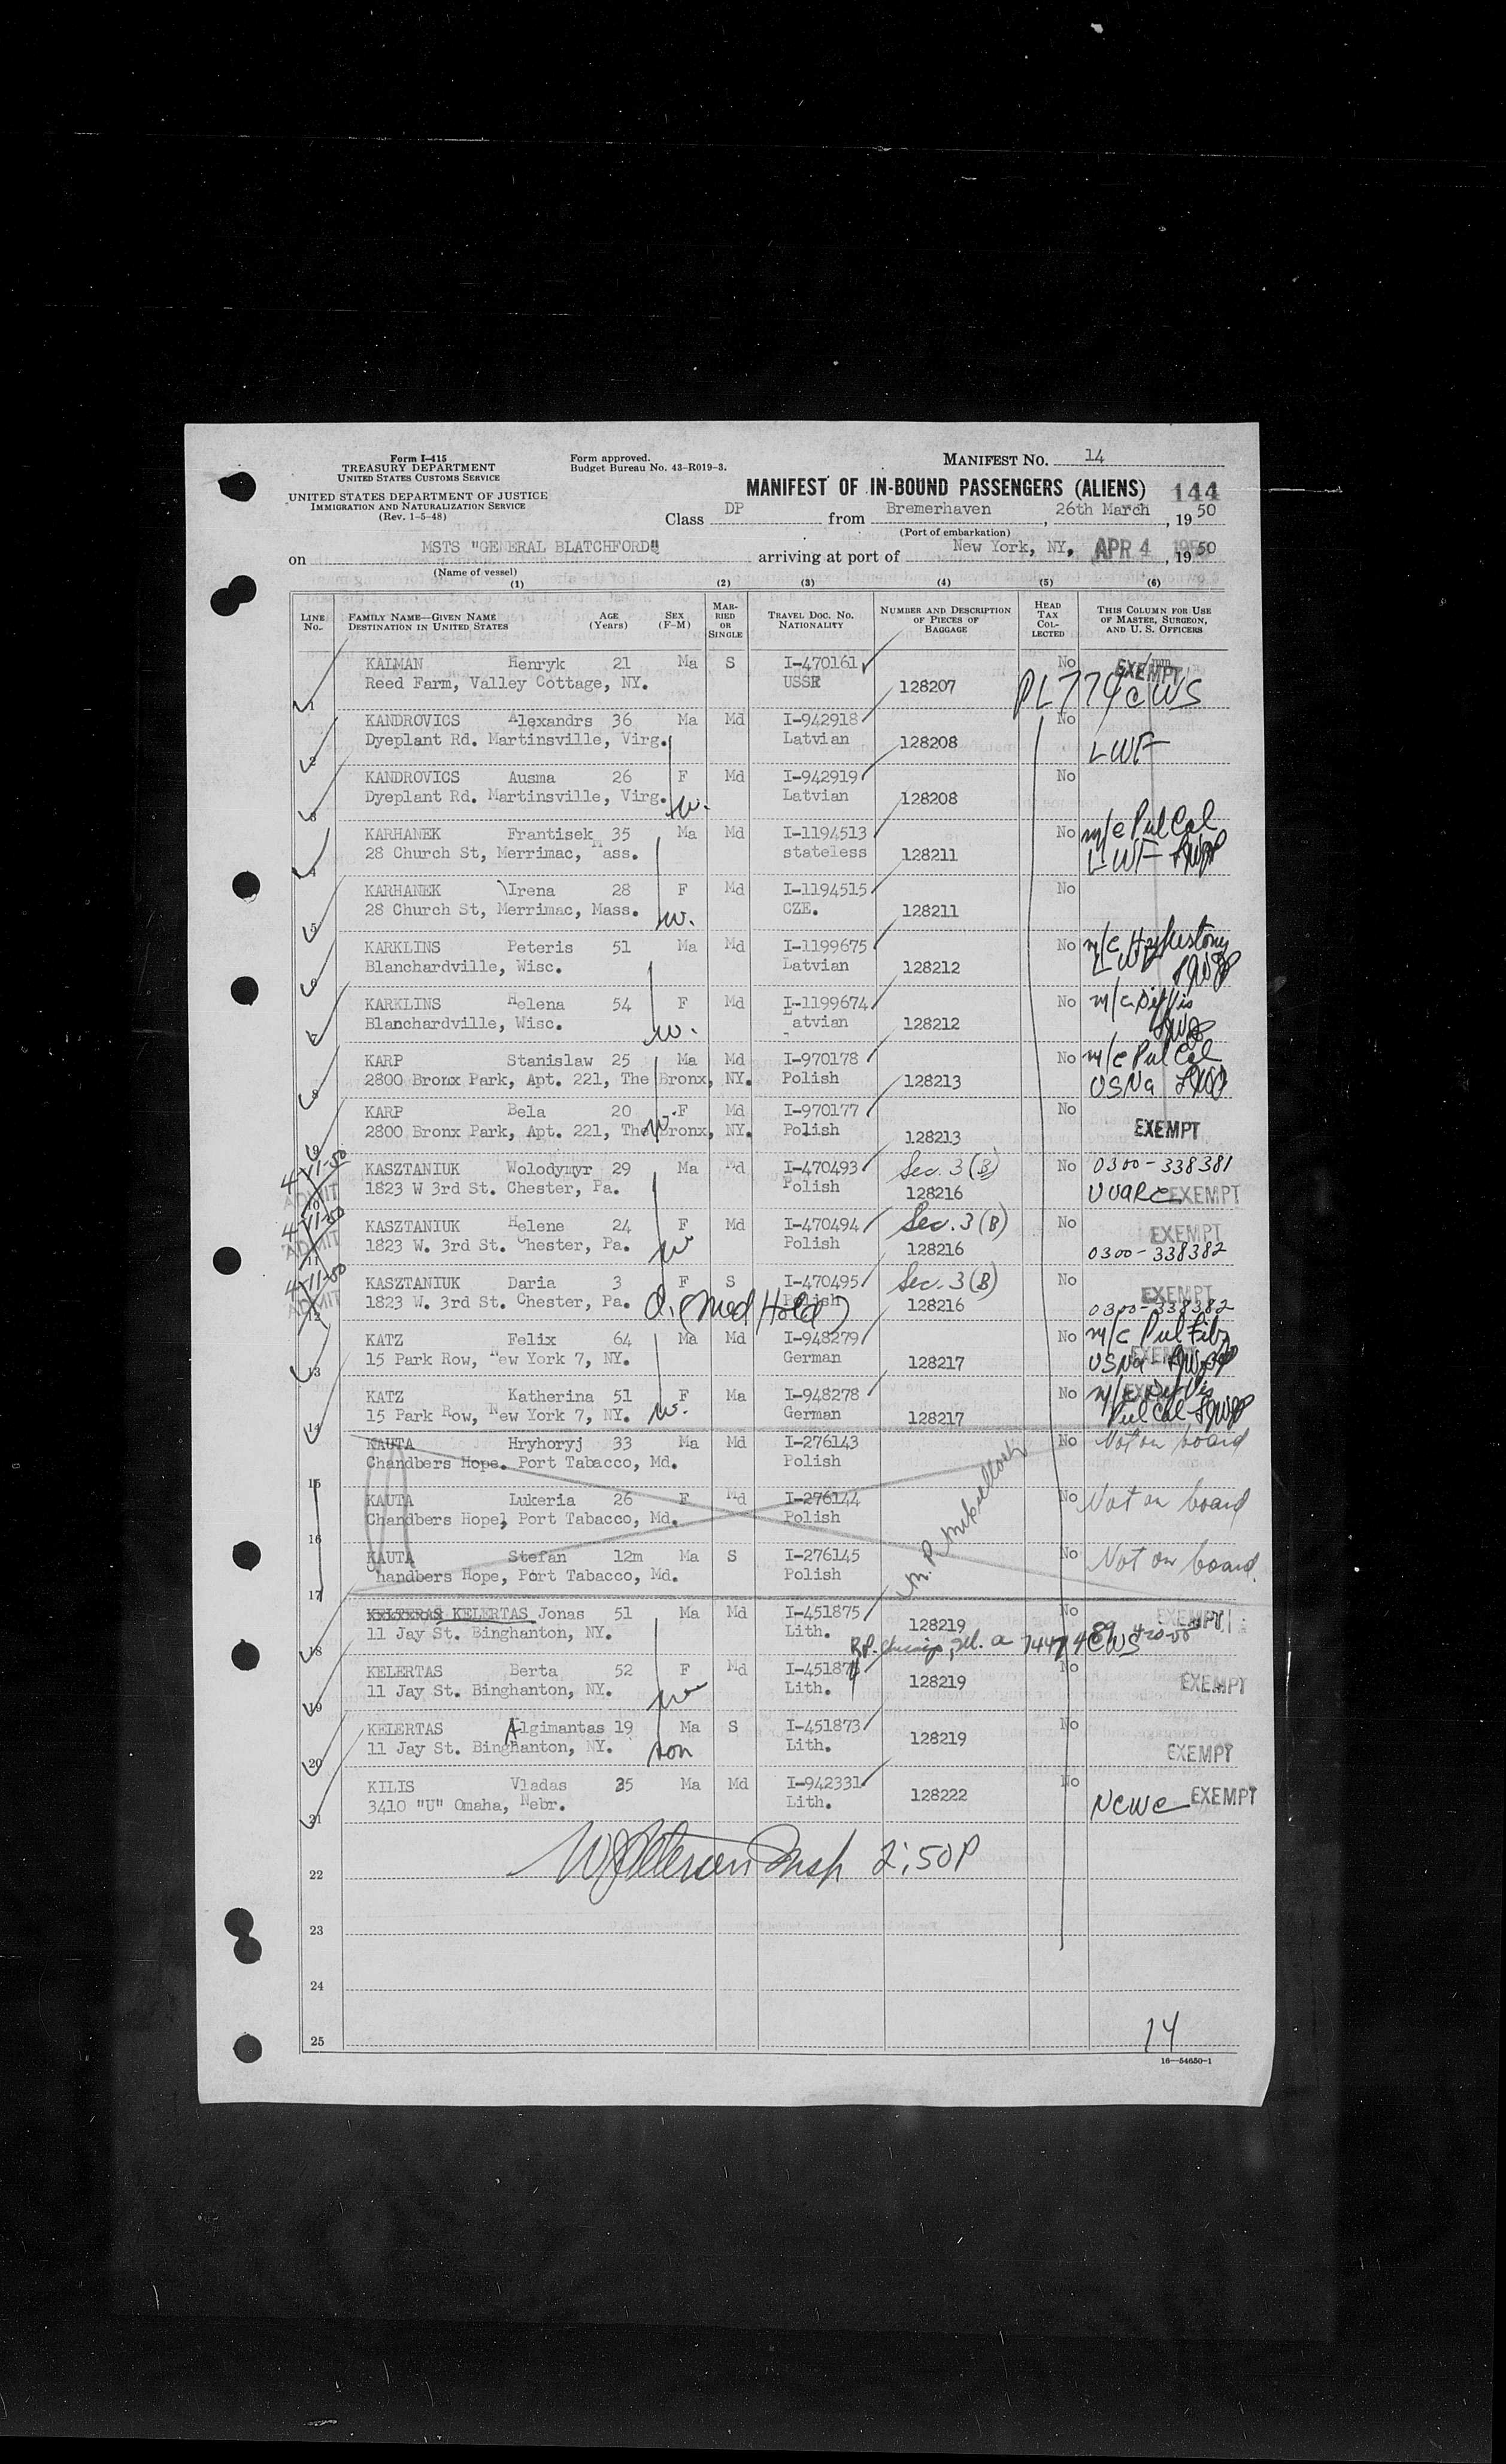 Form I-415
TREASURY DEPARTMENT
UNITED STATES CUSTOMS SERVICE
UNITED STATES DEPARTMENT OF JUSTICE
IMMIGRATION AND NATURALIZATION SERVICE
(Rev. 1-5-48)
Form approved.
Budget Bureau No. 43-R019-3.
MANIFEST NO. 14
MANIFEST OF IN-BOUND PASSENGERS (ALIENS) 144
Class DP from Bremerhaven, 26th March, 1950
(Port of embarkation)
on MSTS "GENERAL BLATCHFORD" arriving at port of New York, NY, APR 4, 1950
(Name of vessel)
(1) (2) (3) (4) (5) (6)
LINE No. FAMILY NAME—GIVEN NAME DESTINATION IN UNITED STATES AGE (Years) SEX (F-M) MARRIED OR SINGLE TRAVEL DOC. NO. NATIONALITY NUMBER AND DESCRIPTION OF PIECES OF BAGGAGE HEAD TAX COLLECTED THIS COLUMN FOR USE OF MASTER, SURGEON, AND U. S. OFFICERS
1 KALMAN Henryk 21 Ma S I-470161 No EXEMPT
Reed Farm, Valley Cottage, NY. USSR 128207 PL 774 CWS
2 KANDROVICS Alexandrs 36 Ma Md I-942918 No
Dyeplant Rd. Martinsville, Virg. Latvian 128208 LWF
3 KANDROVICS Ausma 26 F Md I-942919 No
Dyeplant Rd. Martinsville, Virg. W. Latvian 128208
4 KARHANEK Frantisek 35 Ma Md I-1194513 No m/c Pul Cal
28 Church St, Merrimac, Mass. stateless 128211 LWF
5 KARHANEK Irena 28 F Md I-1194515 No
28 Church St, Merrimac, Mass. W. CZE. 128211
6 KARKLINS Peteris 51 Ma Md I-1199675 No m/c
Blanchardville, Wisc. Latvian 128212 LWF
7 KARKLINS Helena 54 F Md I-1199674 No m/c Def Vis
Blanchardville, Wisc. W. Latvian 128212
8 KARP Stanislaw 25 Ma Md I-970178 No m/c Pul Cal
2800 Bronx Park, Apt. 221, The Bronx, NY. Polish 128213 USNA
9 KARP Bela 20 F Md I-970177 No
2800 Bronx Park, Apt. 221, The Bronx, NY. W. Polish 128213 EXEMPT
4-11-50 ADMIT
10 KASZTANIUK Wolodymyr 29 Ma Md I-470493 Sec. 3(B) No 0300-338381
1823 W 3rd St. Chester, Pa. Polish 128216 UUARC EXEMPT
4-11-50 ADMIT
11 KASZTANIUK Helene 24 F Md I-470494 Sec. 3(B) No EXEMPT
1823 W. 3rd St. Chester, Pa. W Polish 128216 0300-338382
4-11-50 ADMIT
12 KASZTANIUK Daria 3 F S I-470495 Sec. 3(B) No EXEMPT
1823 W. 3rd St. Chester, Pa. d. (Med Hold) Polish 128216 0300-338382
13 KATZ Felix 64 Ma Md I-948279 No m/c Pul Fib
15 Park Row, New York 7, NY. German 128217 USNA EXEMPT
14 KATZ Katherina 51 F Ma I-948278 No m/c Def Vis
15 Park Row, New York 7, NY. W. German 128217 Pul Cal
15 KAUTA Hryhoryj 33 Ma Md I-276143 No Not on board
Chandbers Hope. Port Tabacco, Md. Polish
16 KAUTA Lukeria 26 F Md I-276144 No Not on board
Chandbers Hope, Port Tabacco, Md. Polish
17 KAUTA Stefan 12m Ma S I-276145 No Not on board.
Chandbers Hope, Port Tabacco, Md. Polish
18 KELTERAS KELERTAS Jonas 51 Ma Md I-451875 No EXEMPT
11 Jay St. Binghanton, NY. Lith. 128219
R.P. Chicago, Ill. CWS
19 KELERTAS Berta 52 F Md I-451874 No
11 Jay St. Binghanton, NY. W Lith. 128219 EXEMPT
20 KELERTAS Algimantas 19 Ma S I-451873 No
11 Jay St. Binghanton, NY. son Lith. 128219 EXEMPT
21 KILIS Vladas 35 Ma Md I-942331 No
3410 "U" Omaha, Nebr. Lith. 128222 NCWC EXEMPT
22 Insp 2:50P
23
24
25
14
16—54650-1